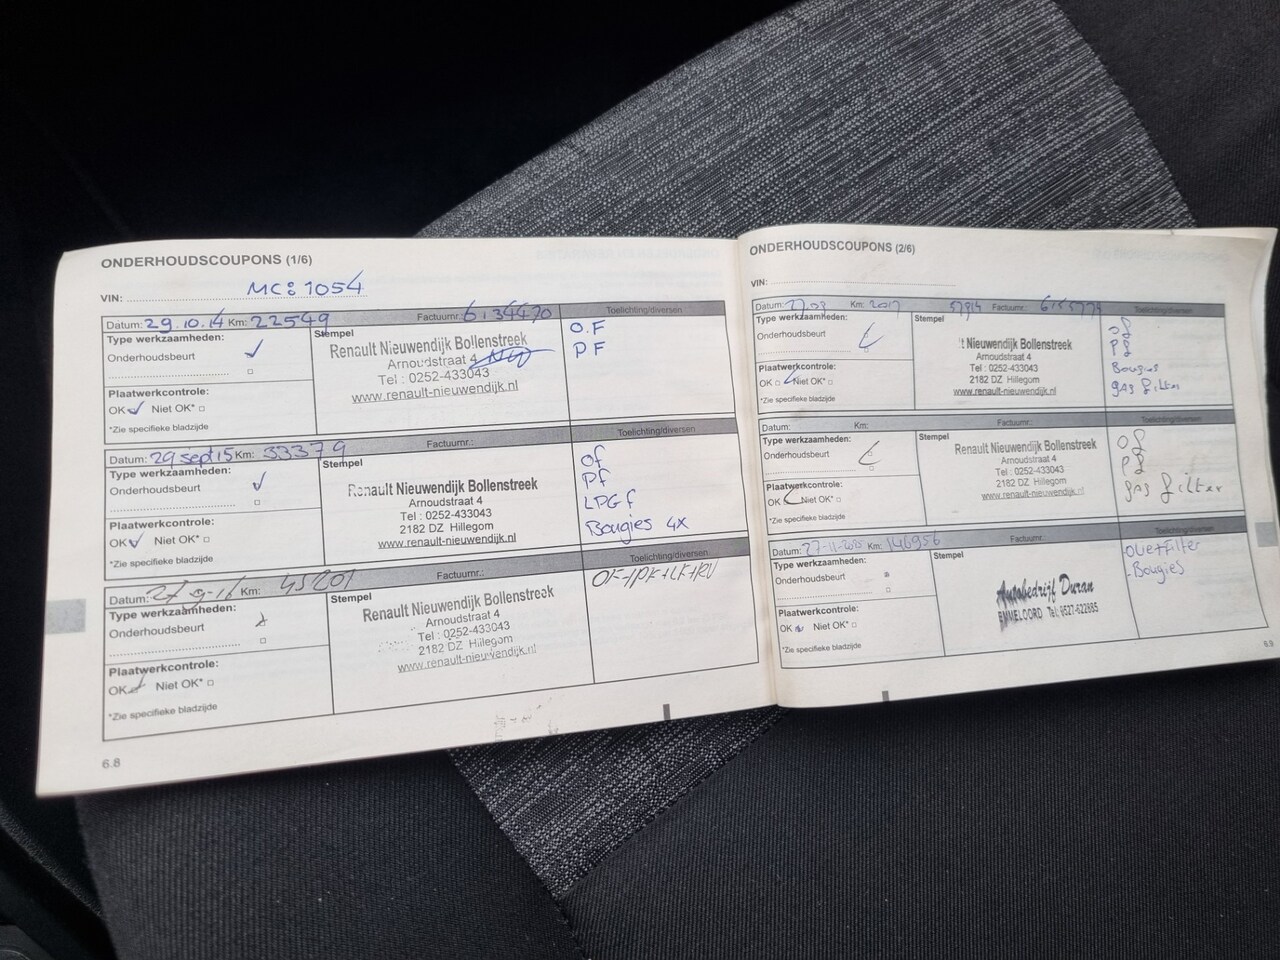 ONDERHOUDSCOUPONS (1/6)
VIN: MC: 1054
Datum: 29.10.14 Km: 22549 Factuurnr.: 6134470
Type werkzaamheden:
Onderhoudsbeurt
Plaatwerkcontrole:
OK Niet OK*
*Zie specifieke bladzijde
Stempel
Renault Nieuwendijk Bollenstreek
Arnoudstraat 4
Tel : 0252-433043
www.renault-nieuwendijk.nl
O.F
PF
Datum: 29 sept 15 Km: 33379 Factuurnr.: Toelichting/diversen
Type werkzaamheden:
Onderhoudsbeurt
Plaatwerkcontrole:
OK Niet OK*
*Zie specifieke bladzijde
Stempel
Renault Nieuwendijk Bollenstreek
Arnoudstraat 4
Tel : 0252-433043
2182 DZ Hillegom
www.renault-nieuwendijk.nl
Of
Pf
LPG f
Bougies 4x
Datum: 27-9-16 Km: 45201 Factuurnr.: Toelichting/diversen
Type werkzaamheden:
Onderhoudsbeurt
Plaatwerkcontrole:
OK Niet OK*
*Zie specifieke bladzijde
Stempel
Renault Nieuwendijk Bollenstreek
Arnoudstraat 4
Tel : 0252-433043
2182 DZ Hillegom
www.renault-nieuwendijk.nl
6.8
ONDERHOUDSCOUPONS (2/6)
VIN:
Datum: 27.03 Km: 2017 57914 Factuurnr. Toelichting/diversen
Type werkzaamheden:
Onderhoudsbeurt
Plaatwerkcontrole:
OK Niet OK*
*Zie specifieke bladzijde
Stempel
t Nieuwendijk Bollenstreek
Arnoudstraat 4
Tel : 0252-433043
2182 DZ Hillegom
www.renault-nieuwendijk.nl
of
pf
Bougies
gas filter
Datum: Km: Factuurnr.: Toelichting/diversen
Type werkzaamheden:
Onderhoudsbeurt
Plaatwerkcontrole:
OK Niet OK*
*Zie specifieke bladzijde
Stempel
Renault Nieuwendijk Bollenstreek
Arnoudstraat 4
Tel : 0252-433043
2182 DZ Hillegom
www.renault-nieuwendijk.nl
of
pf
gas filter
Datum: Km: 146956 Factuurnr.: Toelichting/diversen
Type werkzaamheden:
Onderhoudsbeurt
Plaatwerkcontrole:
OK Niet OK*
*Zie specifieke bladzijde
Stempel
Autobedrijf Duran
EMMELOORD Tel. 0527-622885
- Bougies
6.9